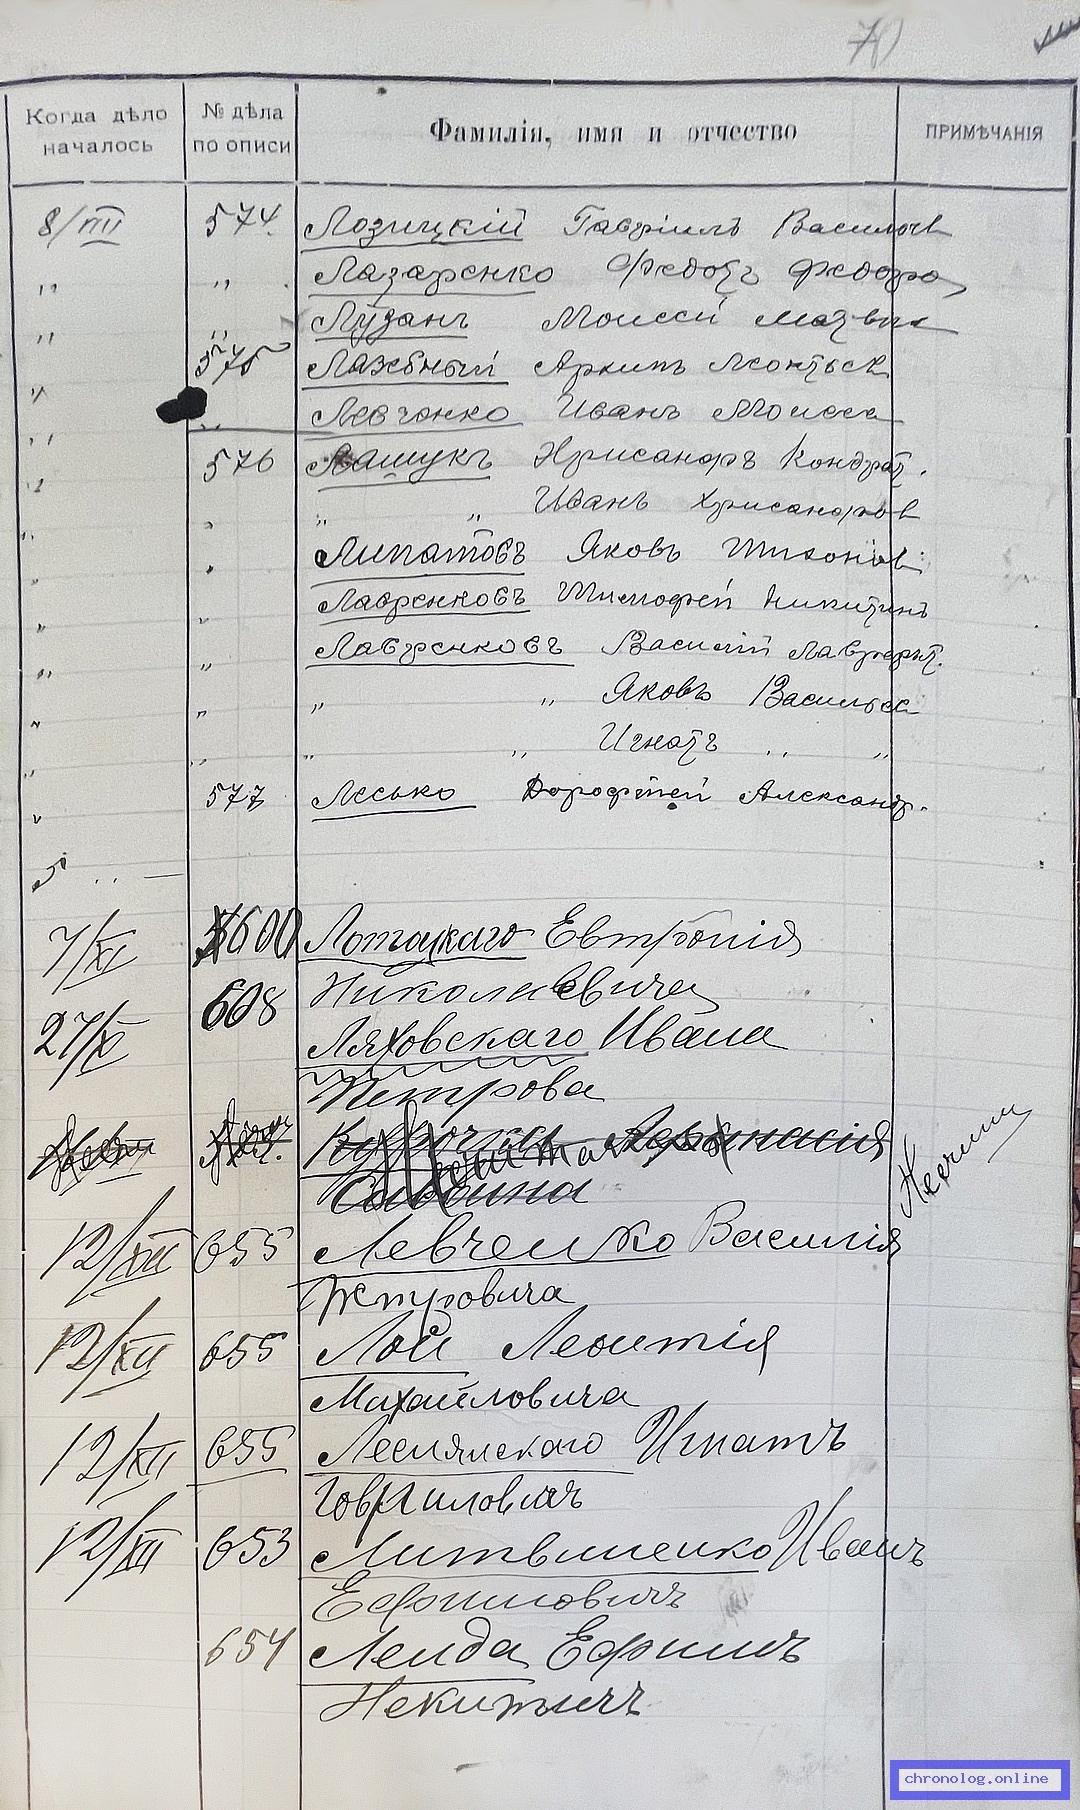 70
Когда дѣло началось
№ дѣла по описи
Фамилія, имя и отчество
ПРИМѢЧАНІЯ
8/VIII 574. Лозицкій Гавріилъ Васильев
„ „ Лазаренко Федотъ Федоро
„ „ Лузанъ Моисей
„ 575 Лажебный Архипъ Леонтьев
„ „ Левченко Иванъ Моисее
„ 576 Лащукъ Хрисанфъ Кондрат.
„ „ „ „ Иванъ Хрисанфов
„ „ Липатовъ Яковъ Тихонов
„ „ Лавренковъ Тимофей Никитинъ
„ „ Лавренковъ Василій Лаврент.
„ „ „ „ Яковъ Васильев
„ „ „ „ Игнатъ „ „
„ 577 Лесько Дорофѣей Александр.
7/XI 600 Лотоцкаго Евтропія
Николаевича
27/X 608 Ляховскаго Ивана
Петрова
12/XII 655 Левченко Василія
Петровича
12/XII 655 Лой Леонтія
Михайловича
12/XII 655 Игнатъ
Говриловичъ
12/XII 653 Литвиненко Иванъ
Ефимовичъ
654 Ленда Ефимъ
Некитичъ
chronolog.online